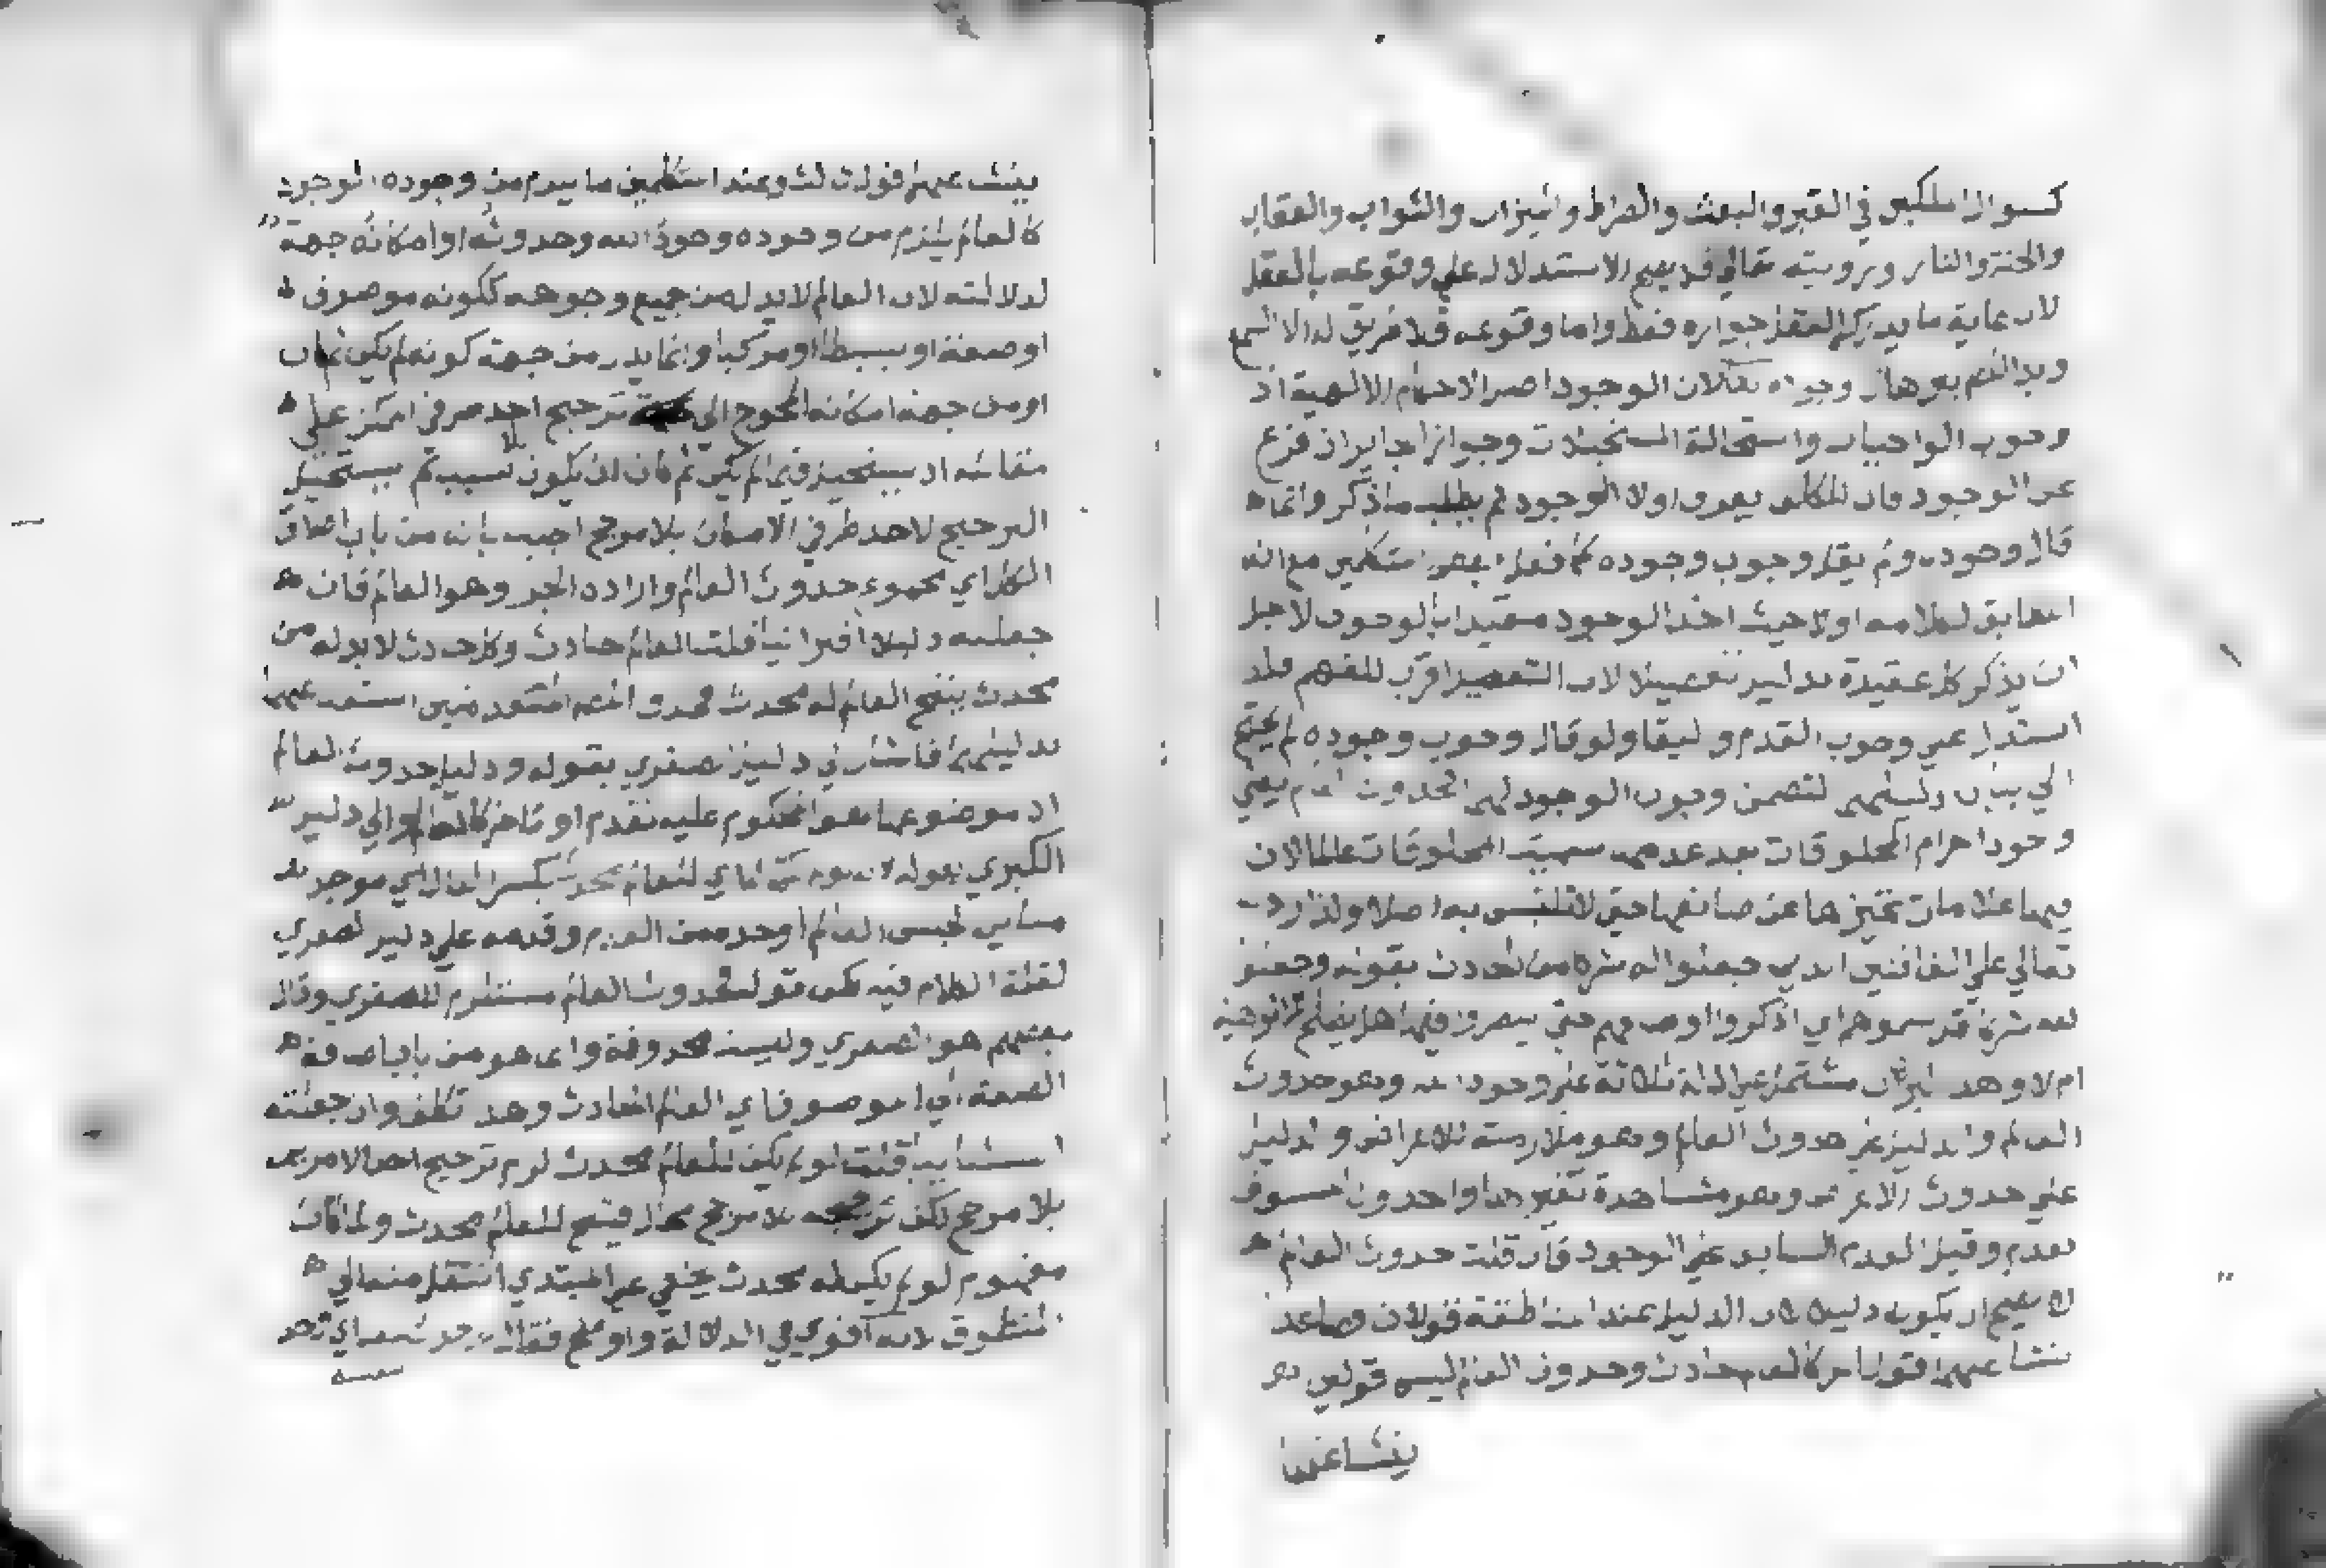 كسوال الملكين في القبر والبعث والصراط والميزان والثواب والعقاب
والجنة والنار ورويته تعالى فلا يصح الاستدلال على وقوعه بالعقل
لان غاية ما يدركه العقل جوازه فقط واما وقوعه فلا طريق له الا السمع
وبدا وجوده تعالى لان الوجود اصل الاحكام الالهية اذ
وجوب الواجبات واستحالة المستحيلات وجواز الجايزات فرع
عن الوجود فان المكلف يعرف اولا الوجود ثم يطلب ما ذكر وانما
قال وجوده ولم يقل وجوب وجوده كما فعل بعض المتكلمين مع انه
المطابق لكلامه اولا حيث اخذ الوجود مقيدا بالوجوب لاجل
ان يذكر كل عقيدة بدليل تفصيلا لان التفصيل اقرب للفهم فلذ
استدل على وجوب القدم والبقا ولو قال وجوب وجوده لم يحتج
الي بيان دليلهما لتضمن وجوب الوجود لهما لحدوث العالم يعني
وجود اجرام المخلوقات بعد عدمها سميت المخلوقات عالما لان
فيها علامات تميزها عن صانعها حتى لا تلتبس به اصلا ولذا رد
تعالي علي الذين جعلوا له شركا من الحدث بقوله وجعلوا
لله شركا قل سموهم اي اذكروا اوصافهم حتي ينظروا فيها هل يصلح للالوهية
ام لا وهذ مشتمل علي ادلة ثلاثة على وجود الله وهو حدوث
العالم والدليل على حدوث العالم وهو ملازمته للاعراض والدليل
على حدوث الاعراض وهو مشاهدة تغيرها واحدوث المسبوق
بعدم وقيل العدم السابق على الوجود فان قلت حدوث العالم
لا يصح ان يكون دليلا لان الدليل عند المناطقة قولان فصاعد
ينشا عنهما قول اخر كالعالم حادث وحدوث العالم ليس قولين
ينشا عنهما
ينشا عنهما قول ثالث وعند المتكلمين ما يلزم من وجوده الوجود
كالعالم يلزم من وجوده وجود الله وحدوثه او امكانه جهة
لدلالته لان العالم لا يدل من جميع وجوهه ككونه موصوف
او صفة او بسيطا او مركبا وانما يدل من جهة كونه لم يكن ثم كان
او من جهة امكانه المحوج الي ترجيح احد طرفي الممكن علي
مقابله اذ يستحيل فيما لم يكن ثم كان ان يكون بلا سبب ثم يستحيل
الترجيح لاحد طرفي الامكان بلا مرجح اجيب بانه من باب اطلاق
الكل اي مجموع حدوث العالم وارادة الجز وهو العالم فان
جعلته دليلا اقترانيا قلت العالم حادث وكل حادث لا بد له من
محدث ينتج العالم له محدث استدل عليهما
بدليلهما فاشار الي دليل الصغرى بقوله ودليل حدوث العالم
اذ موضوعها هو المحكوم عليه تقدم او تاخر كالعالم والي دليل
الكبري بقوله لانه لو لم يكن له اي للعالم محدث بكسر الدال اي موجد
لجنس العالم اوجده من العدم وقدمه علي دليل الصغري
لقلة الكلام فيه لكن قوله لحدوث العالم مستلزم للصغري وقال
بعضهم هو الصغري وليست محذوفة وانما هو من باب اضافة
الصفة الي الموصوف اي العالم الحادث وهذ تكلف وان جعلته
استثنائيا قلت لو لم يكن للعالم محدث لزم ترجيح احد الامرين
بلا مرجح لكن ترجيحه بلا مرجح محال فينتج للعالم محدث ولما كان
مفهوم لو لم يكن له محدث يخفي علي المبتدي انتقل منه الي
المنطوق لانه اقوي في الدلالة واوضح فقال